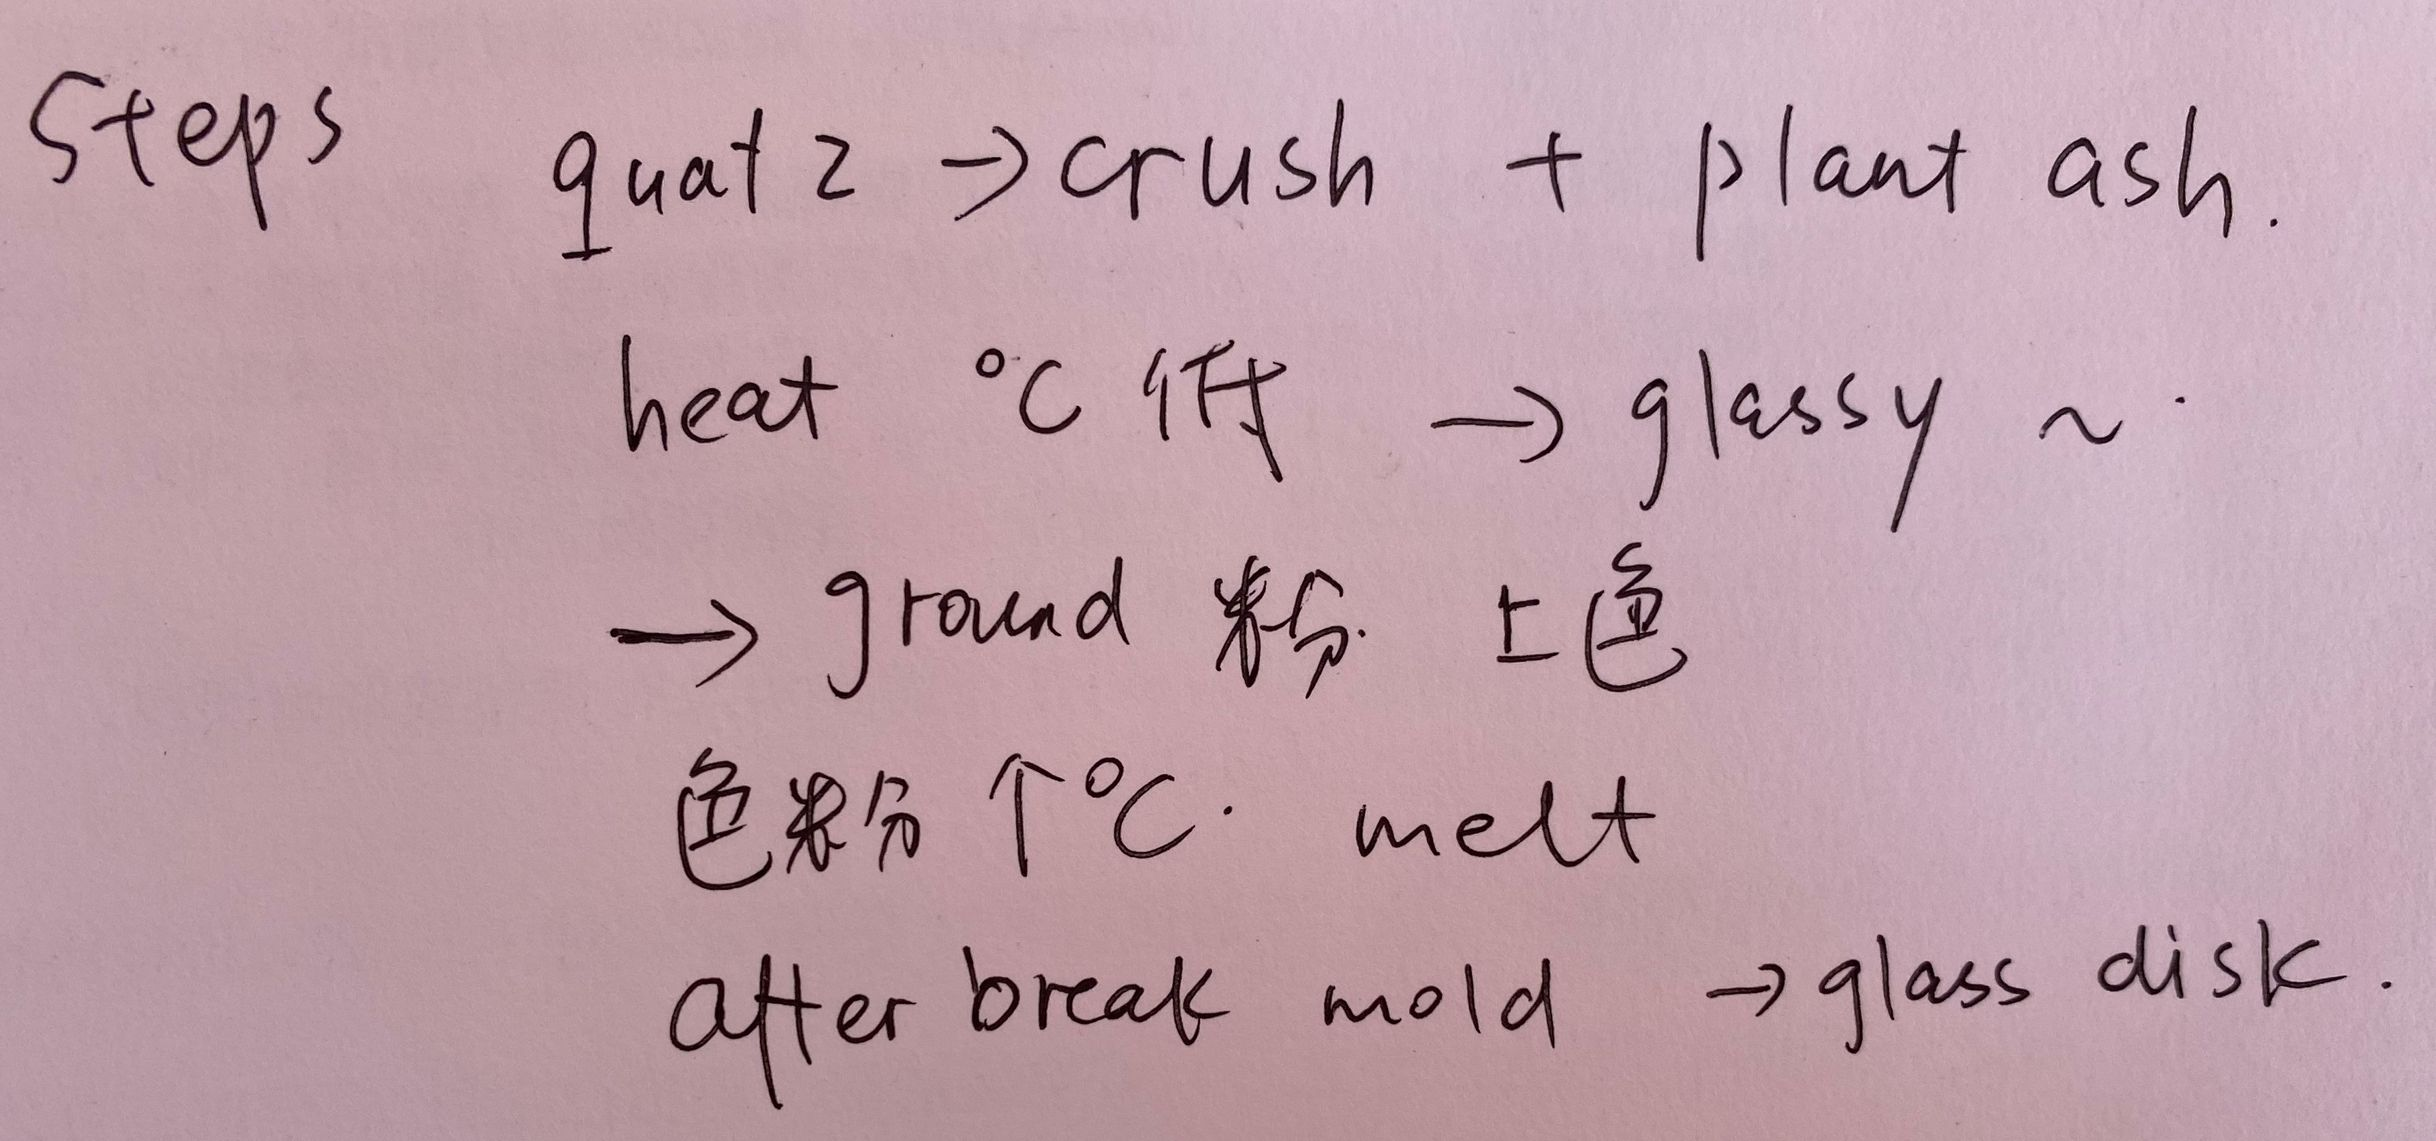 Steps quatz → crush + plant ash.
heat °C 低 → glassy ~.
→ ground 粉. 上色
色粉 ↑°C. melt
after break mold → glass disk.